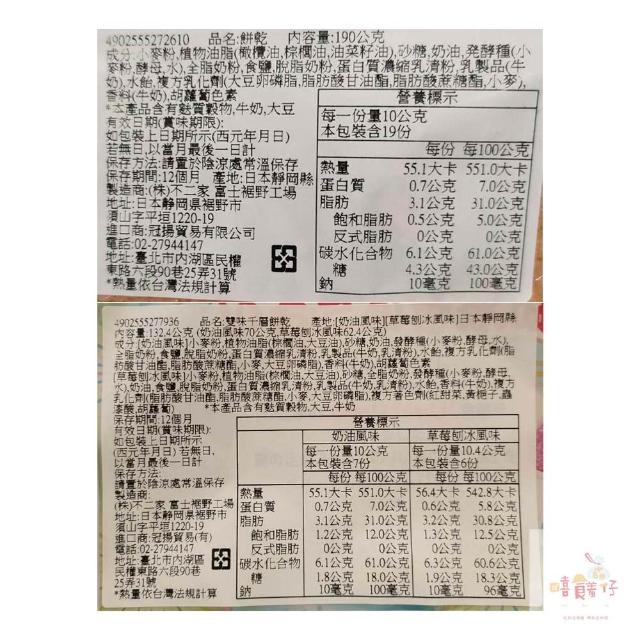 4902555272610　品名:餅乾　內容量:190公克
成分:小麥粉,植物油脂(橄欖油,棕櫚油,油菜籽油),砂糖,奶油,発酵種(小
麥粉,酵母,水),全脂奶粉,食鹽,脫脂奶粉,蛋白質濃縮乳清粉,乳製品(牛
奶),水飴,複方乳化劑(大豆卵磷脂,脂肪酸甘油酯,脂肪酸蔗糖酯,小麥),
香料(牛奶),胡蘿蔔色素
*本產品含有麩質穀物,牛奶,大豆
有效日期(賞味期限):
如包裝上日期所示(西元年月日)
若無日,以當月最後一日計
保存方法:請置於陰涼處常溫保存
保存期間:12個月　產地:日本靜岡縣
製造商:(株)不二家 富士裾野工場
地址:日本静岡県裾野市
須山字平垣1220-19
進口商:冠揚貿易有限公司
電話:02-27944147
地址:臺北市內湖區民權
東路六段90巷25弄31號
*熱量依台灣法規計算
營養標示
每一份量10公克
本包裝含19份
每份 每100公克
熱量 55.1大卡 551.0大卡
蛋白質 0.7公克 7.0公克
脂肪 3.1公克 31.0公克
飽和脂肪 0.5公克 5.0公克
反式脂肪 0公克 0公克
碳水化合物 6.1公克 61.0公克
糖 4.3公克 43.0公克
鈉 10毫克 100毫克
4902555277936　品名:雙味千層餅乾　產地:[奶油風味][草莓刨冰風味]日本靜岡縣
內容量:132.4公克 (奶油風味70公克,草莓刨冰風味62.4公克)
成分:[奶油風味]小麥粉,植物油脂(棕櫚油,大豆油),砂糖,奶油,發酵種(小麥粉,酵母,水),
全脂奶粉,食鹽,脫脂奶粉,蛋白質濃縮乳清粉,乳製品(牛奶,乳清粉),水飴,複方乳化劑(脂
肪酸甘油酯,脂肪酸蔗糖酯,小麥,大豆卵磷脂),香料(牛奶),胡蘿蔔色素
[草莓刨冰風味]小麥粉,植物油脂(棕櫚油,大豆油),砂糖,全脂奶粉,發酵種(小麥粉,酵母,
水),奶油,食鹽,脫脂奶粉,蛋白質濃縮乳清粉,乳製品(牛奶,乳清粉),水飴,香料(牛奶),複方
乳化劑(脂肪酸甘油酯,脂肪酸蔗糖酯,小麥,大豆卵磷脂),複方著色劑(紅甜菜,黃梔子,蟲
漆酸,胡蘿蔔)　*本產品含有麩質穀物,大豆,牛奶
保存期間:12個月
有效日期(賞味期限):
如包裝上日期所示
(西元年月日) 若無日,
以當月最後一日計
保存方法:
請置於陰涼處常溫保存
製造商:
(株)不二家 富士裾野工場
地址:日本静岡県裾野市
須山字平垣1220-19
進口商:冠揚貿易(有)
電話:02-27944147
地址:臺北市內湖區
民權東路六段90巷
25弄31號
*熱量依台灣法規計算
營養標示
奶油風味 草莓刨冰風味
每一份量10公克 每一份量10.4公克
本包裝含7份 本包裝含6份
每份 每100公克 每份 每100公克
熱量 55.1大卡 551.0大卡 56.4大卡 542.8大卡
蛋白質 0.7公克 7.0公克 0.6公克 5.8公克
脂肪 3.1公克 31.0公克 3.2公克 30.8公克
飽和脂肪 1.2公克 12.0公克 1.3公克 12.5公克
反式脂肪 0公克 0公克 0公克 0公克
碳水化合物 6.1公克 61.0公克 6.3公克 60.6公克
糖 1.8公克 18.0公克 1.9公克 18.3公克
鈉 10毫克 100毫克 10毫克 96毫克